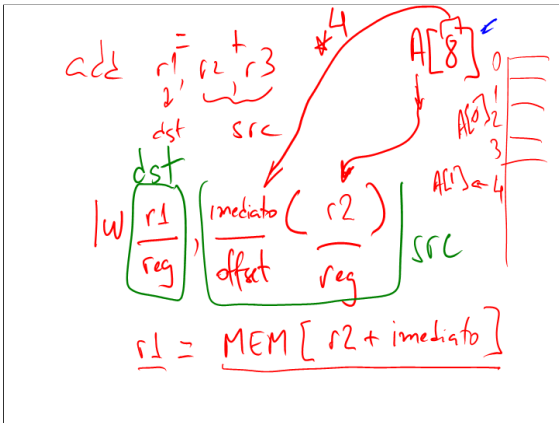 * 4
= +
add r1, r2, r3
A[8]
dst src
0
1
A[0] 2
3
A[1] ← 4
dst
lw r1 , imediato ( r2 )
reg offset reg
src
r1 = MEM [ r2 + imediato ]